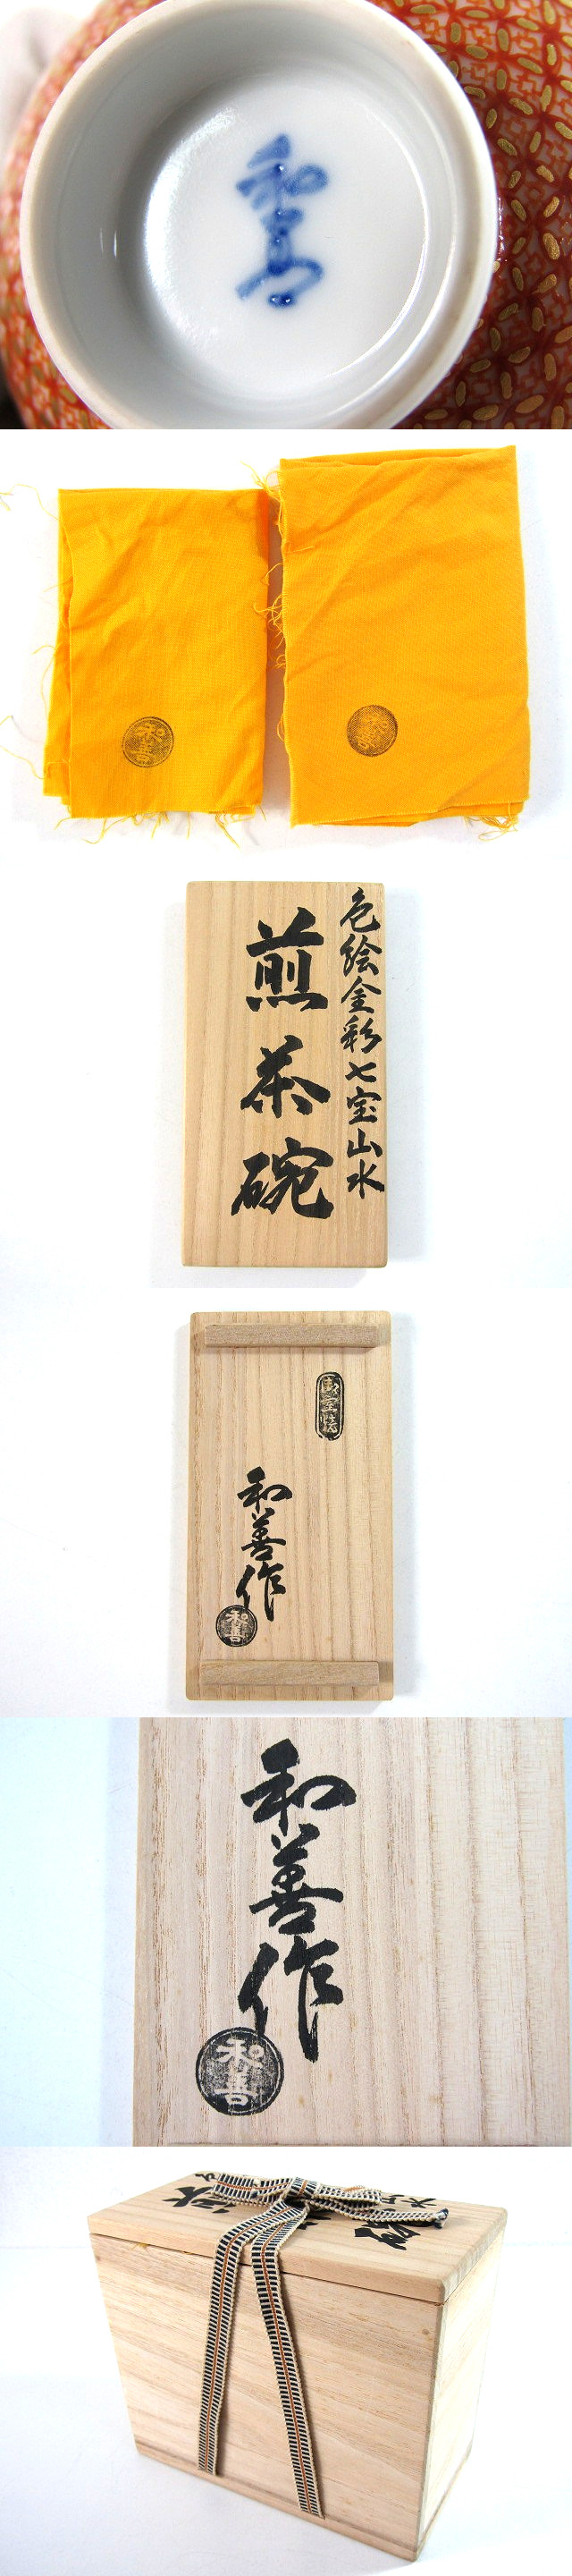 和善
和善
和善
色絵金彩七宝山水
煎茶碗
和善作
和善
和善作
和善